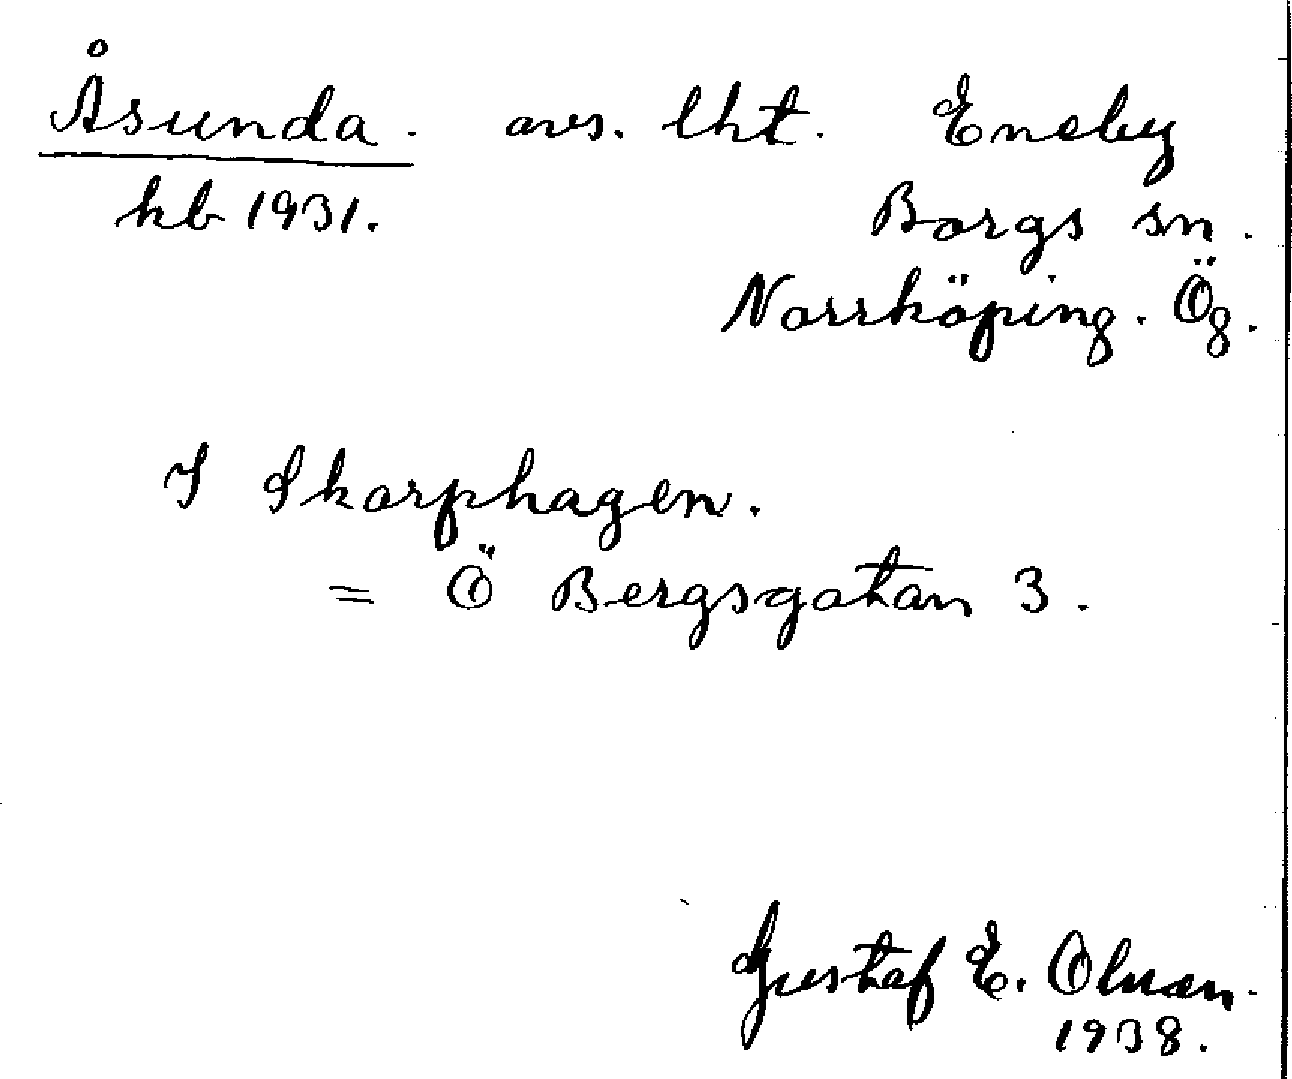 Åsunda. avs. lht. Eneby
kb 1931. Borgs sn.
Norrköping. Ög.
I Skarphagen.
= Ö Bergsgatan 3.
Gustaf E. Olman.
1938.